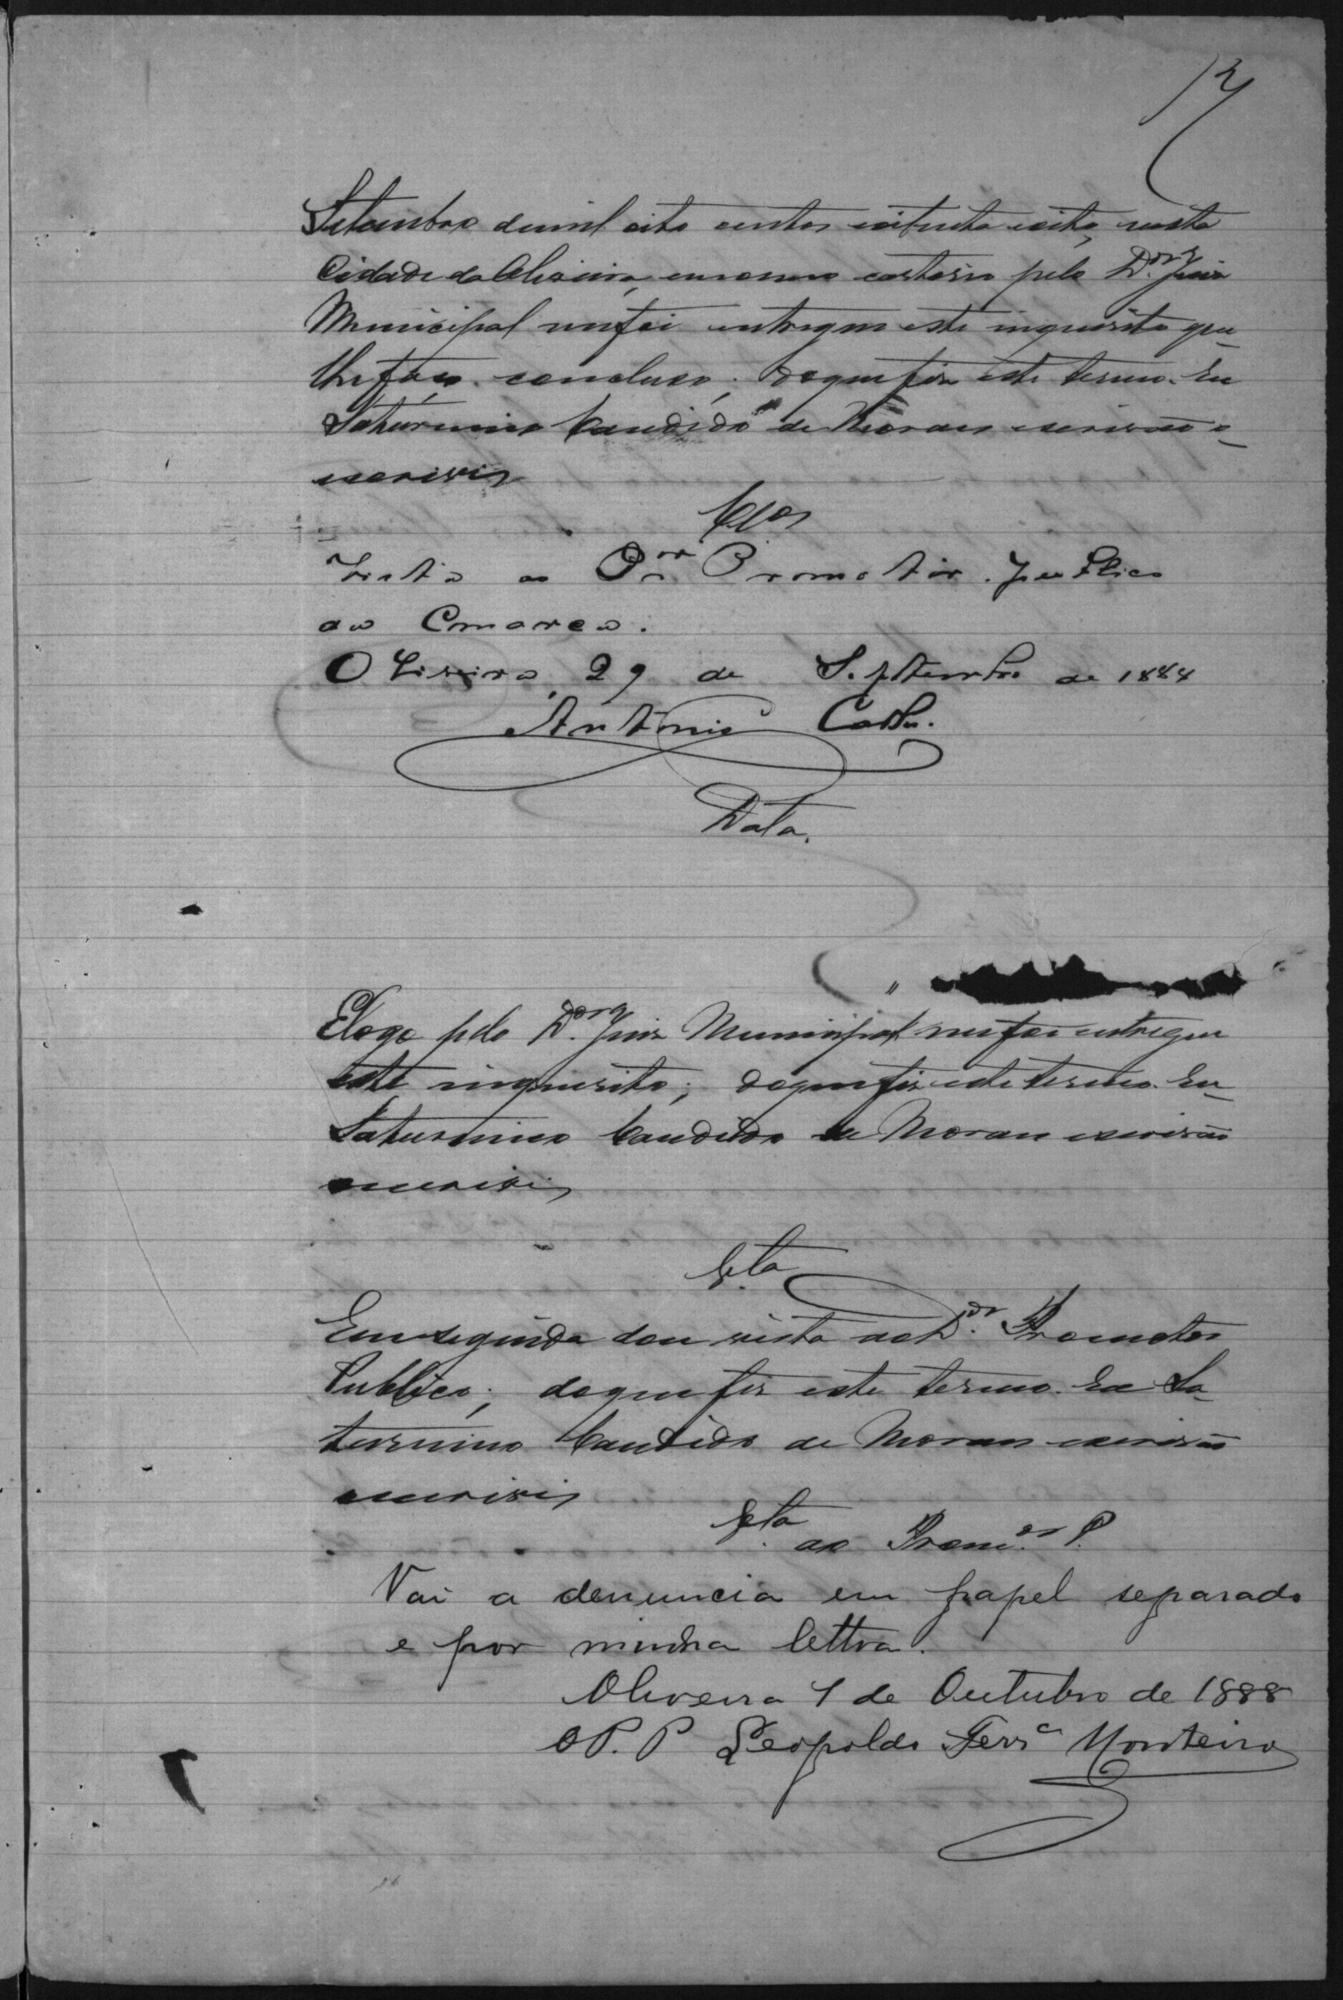 Setembro de mil oito centos e oitenta e oito, nesta
Cidade da Oliveira, em meu cartorio pelo Dor. Juiz
Municipal me foi entregue este inquerito que
lhe fôra concluso; do que fiz este termo. Eu
Saturnino Candido de Moraes escrivão o
escrevi
Clos
Vista ao Dor Promotor publico
da Comarca.
Oliveira, 29 de Septembro de 1888
Antonio
Data.
E logo pelo Dor. Juiz Municipal me foi entregue
este inquerito; do que fiz este termo. Eu
Saturnino Candido de Moraes escrivão
escrevi
Vta
Em seguida dou vista ao Dor. Promotor
Publico; do que fiz este termo. Eu Sa-
turnino Candido de Moraes escrivão
escrevi
Vta ao Promor. P.
Vai a denuncia em papel separado
e por minha lettra.
Oliveira 1 de Outubro de 1888
O P. P Leopoldo Ferra Monteiro